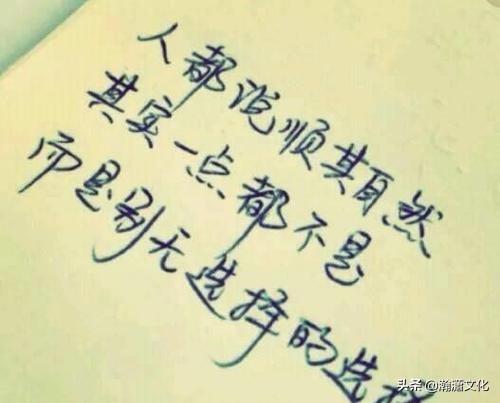 人都说顺其自然
其实一点都不是
而是别无选择的选择
头条@瀚萧文化